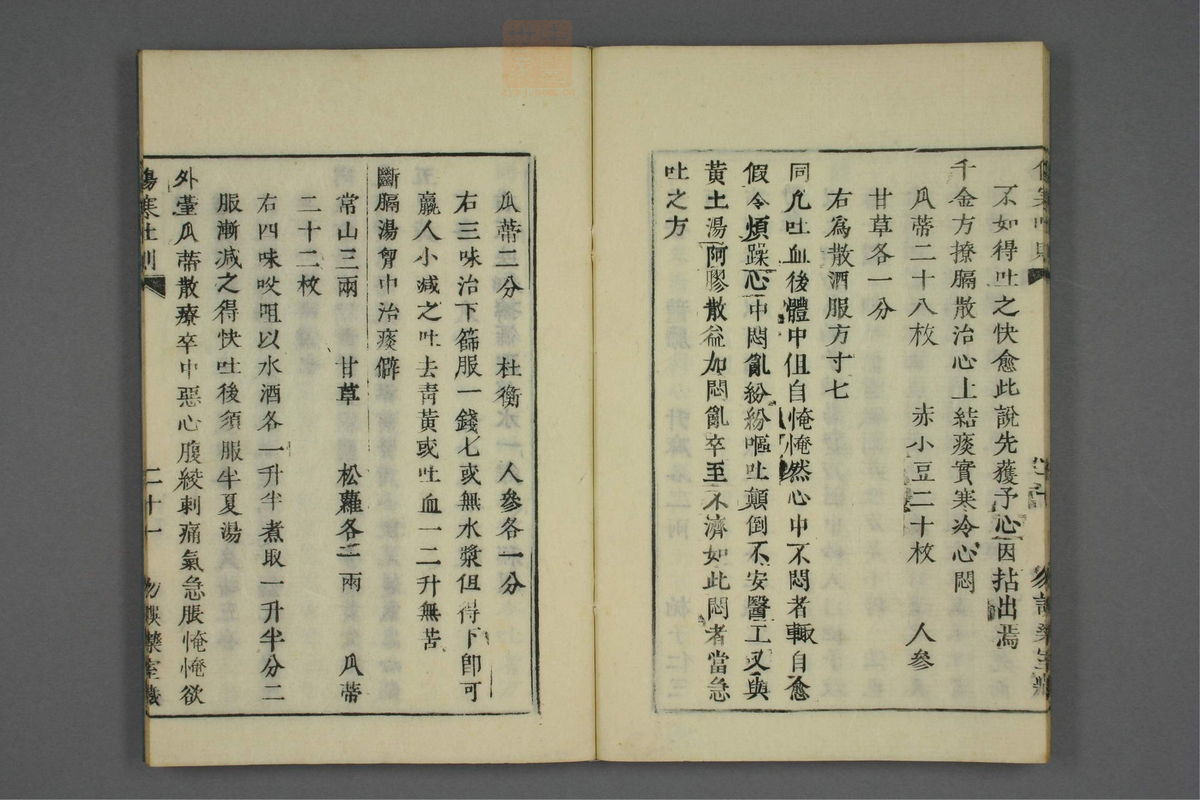 不如得吐之快愈此說先獲予心因拈出焉
千金方撩膈散治心上結痰實寒冷心悶
瓜蒂二十八枚 赤小豆二十枚 人參
甘草各一分
右為散酒服方寸七
同凢吐血後體中但自㤿㤿然心中不悶者輙自愈
假令煩躁心中悶亂紛紛嘔吐顛倒不安醫工又與
黃土湯阿膠散益加悶亂卒至不濟如此悶者當急
吐之方
瓜蒂二分 杜衡 人參各一分
右三味治下篩服一錢七或無水漿但得下卽可
羸人小減之吐去靑黃或吐血一二升無苦
斷膈湯胷中治痰僻
常山三兩 甘草 松蘿各二兩 瓜蒂
二十二枚
右四味㕮咀以水酒各一升半煮取一升半分二
服漸減之得快吐後須服半夏湯
外臺瓜蒂散療卒中惡心腹絞刺痛氣急脹㤿㤿欲
傷寒吐則 二十一 勿誤藥室藏